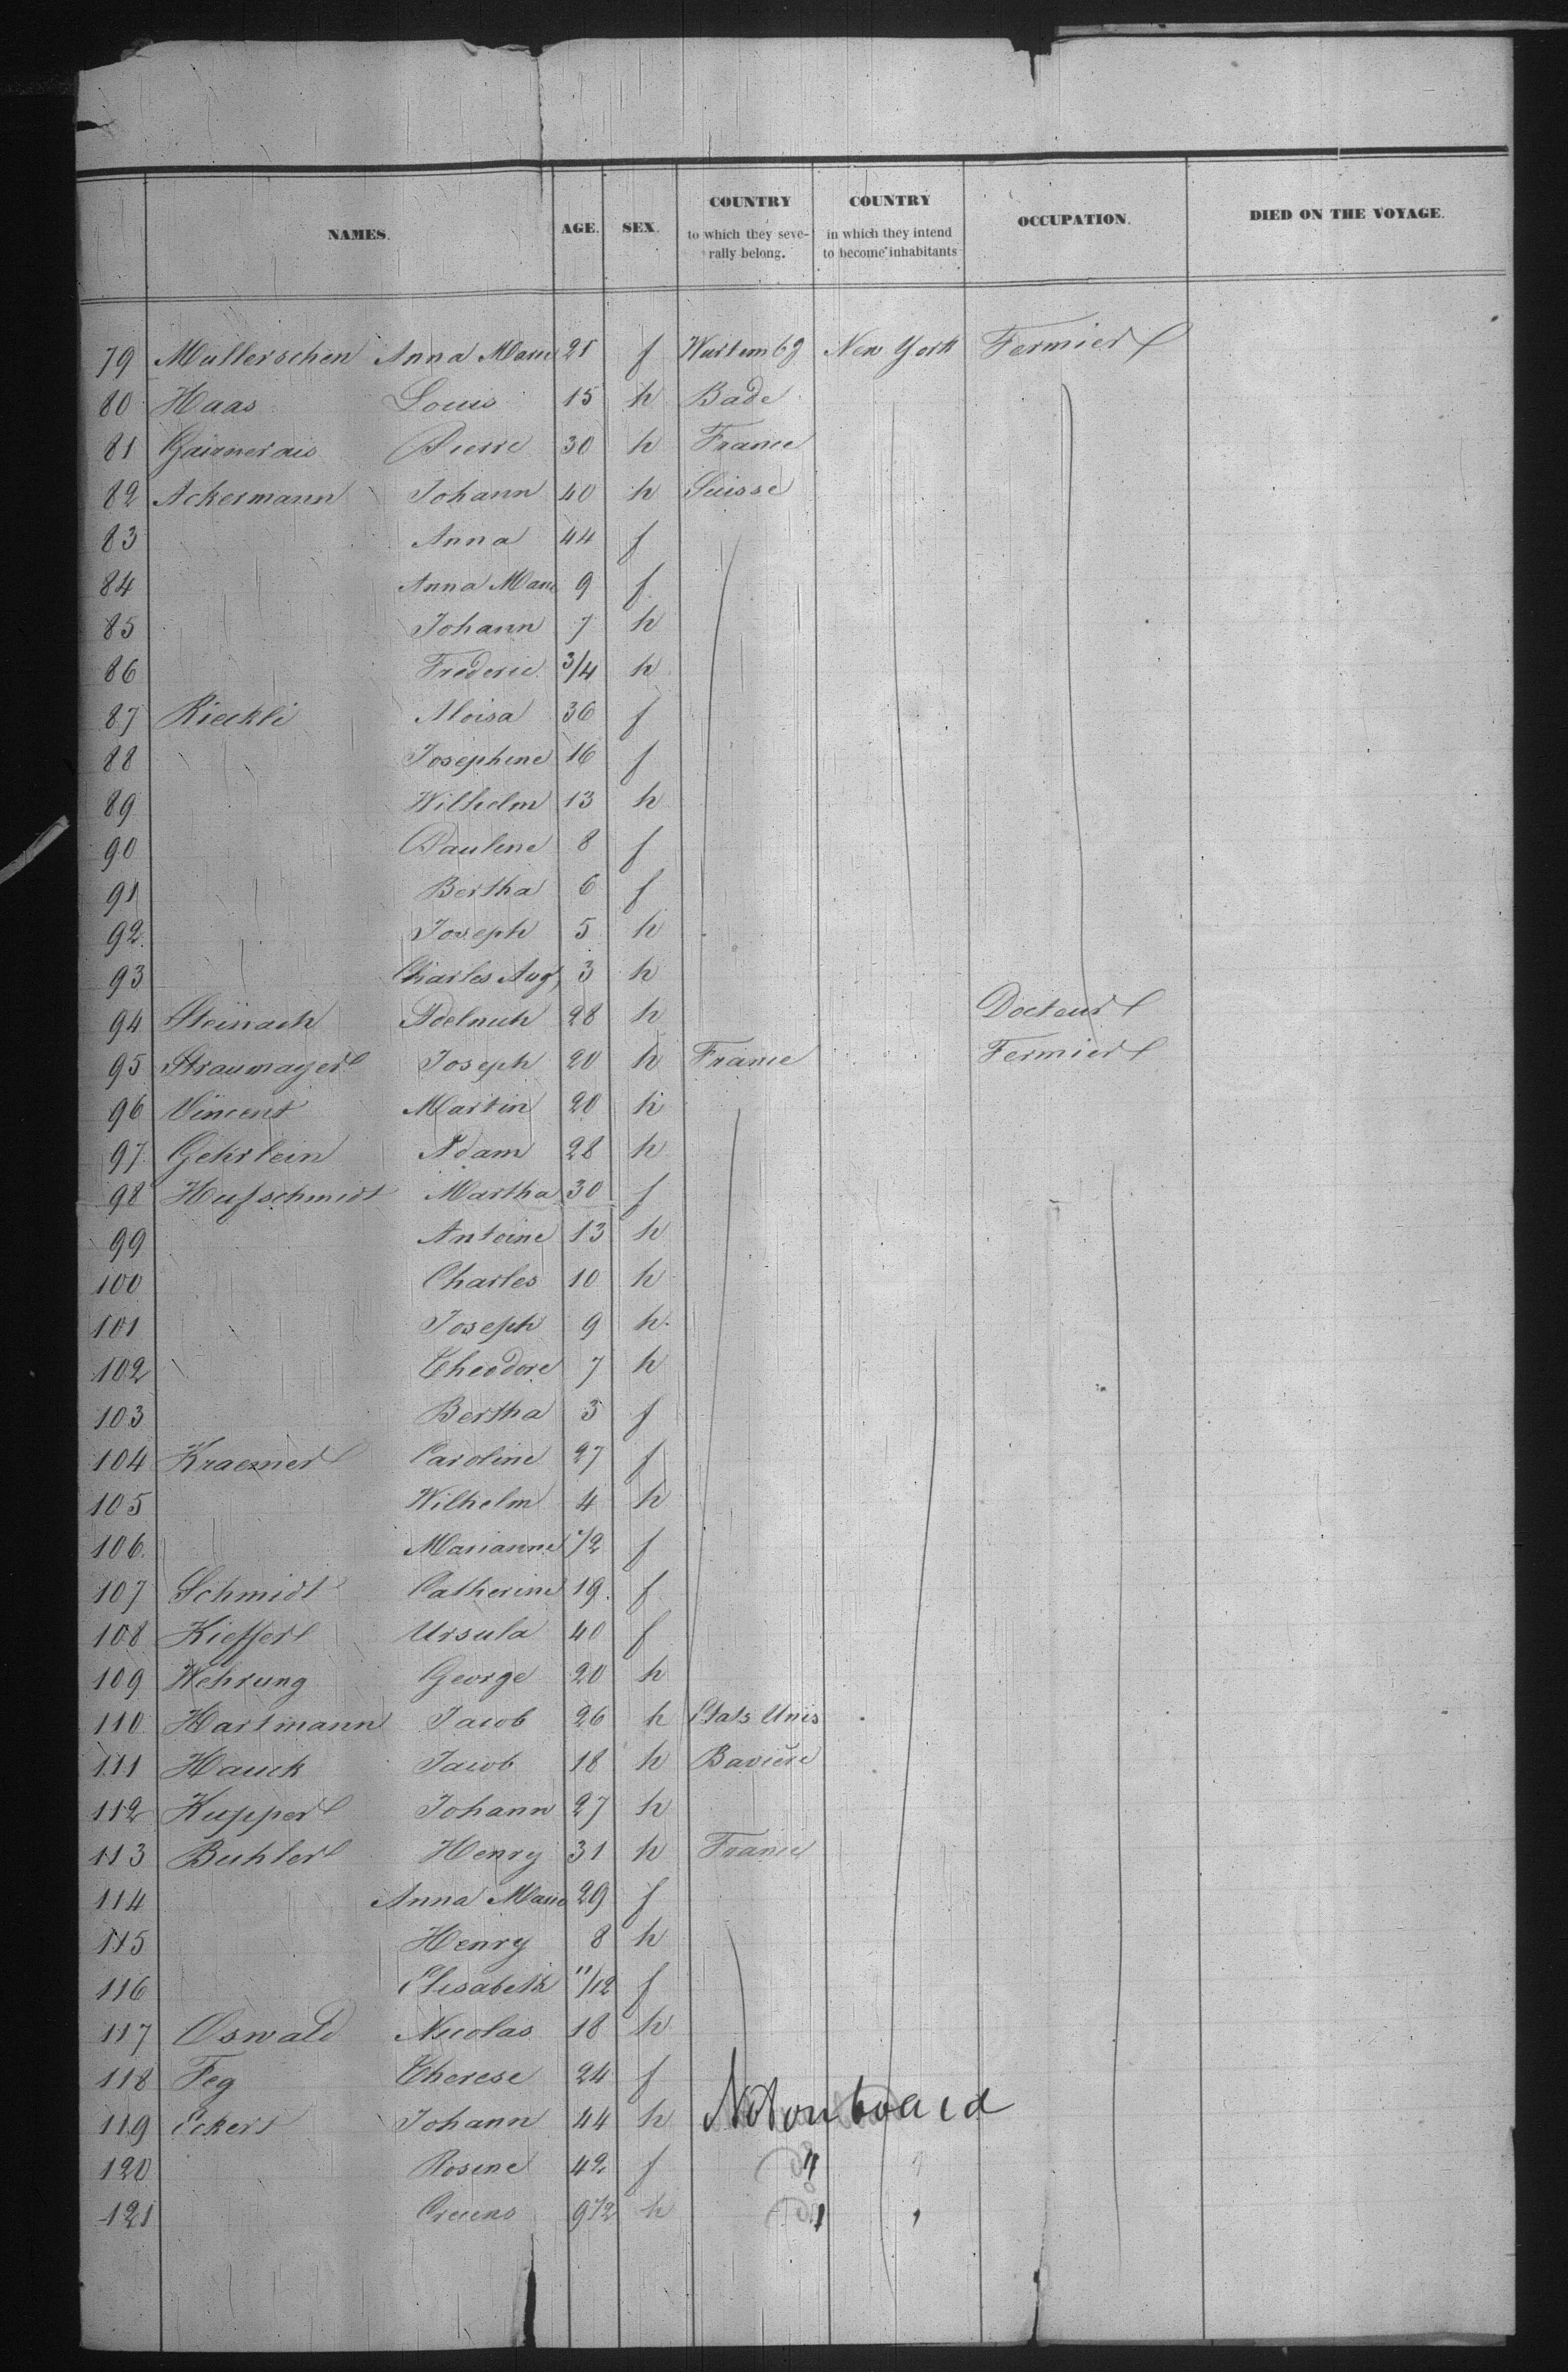 NAMES. AGE. SEX. COUNTRY to which they seve- rally belong. COUNTRY in which they intend to become inhabitants OCCUPATION. DIED ON THE VOYAGE.
79 Mullerschen Anna Marie 21 f Wurtembg New York Fermier
80 Haas Louis 15 h Bade
81 Pierre 30 h France
82 Ackermann Johann 40 h Suisse
83 Anna 44 f
84 Anna Marie 9 f
85 Johann 7 h
86 Frederic 3/4 h
87 Rieckli Aloisa 36 f
88 Josephine 16 f
89 Wilhelm 13 h
90 Pauline 8 f
91 Bertha 6 f
92 Joseph 5 h
93 Charles Aug 3 h
94 Steinach Adelrich 28 h Docteur
95 Straumayer Joseph 20 h France Fermier
96 Vincent Martin 20 h
97 Gehrlein Adam 28 h
98 Hufschmidt Martha 30 f
99 Antoine 13 h
100 Charles 10 h
101 Joseph 9 h
102 Theodore 7 h
103 Bertha 3 f
104 Kraemer Caroline 27 f
105 Wilhelm 4 h
106 Marianne 1/2 f
107 Schmidt Catherine 19 f
108 Kieffer Ursula 40 f
109 Wehrung George 20 h
110 Hartmann Jacob 26 h Etats Unis
111 Hauck Jacob 18 h Bavière
112 Kupper Johann 27 h
113 Buhler Henry 31 h France
114 Anna Marie 29 f
115 Henry 8 h
116 Elisabeth 11/12 f
117 Oswald Nicolas 18 h
118 Feg Therese 24 f
119 Eckert Johann 44 h Not on board
120 Rosine 42 f "
121 9 1/2 h "